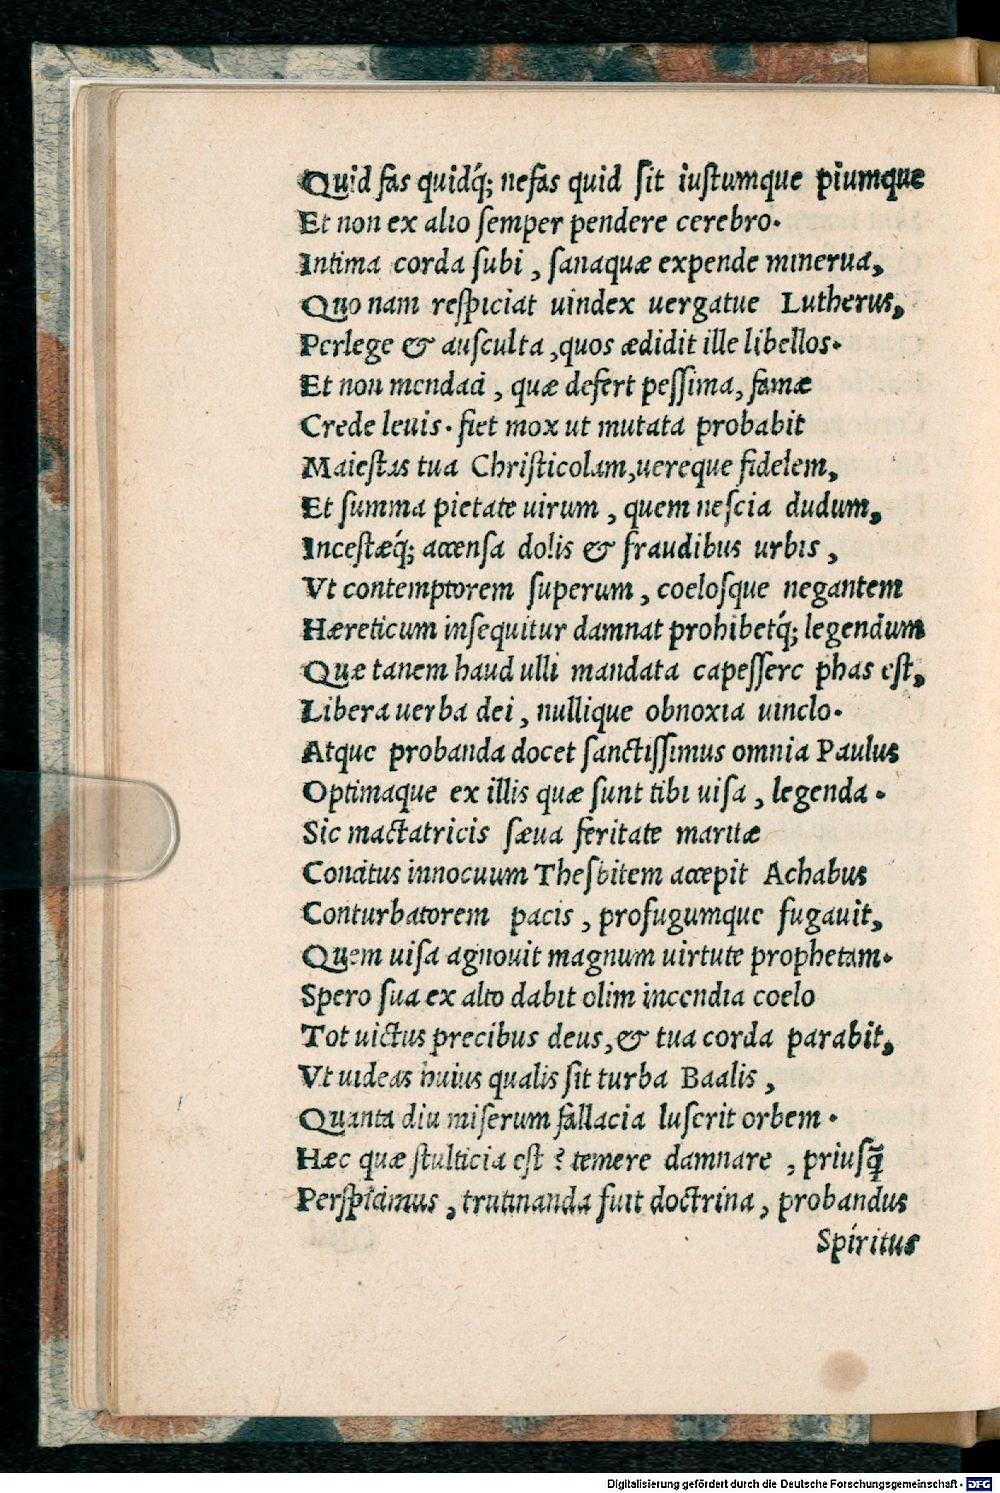 Quid fas quidq́; nefas quid ſit iuſtumque piumque
Et non ex alio ſemper pendere cerebro.
Intima corda ſubi, ſanaquæ expende minerua,
Quo nam reſpiciat uindex uergatue Lutherus,
Perlege & auſculta, quos ædidit ille libellos.
Et non mendaci, quæ defert peſſima, famæ
Crede leuis. fiet mox ut mutata probabit
Maieſtas tua Chriſticolam, uereque fidelem,
Et ſumma pietate uirum, quem neſcia dudum,
Inceſtæq́; accenſa dolis & fraudibus urbis,
Vt contemptorem ſuperum, coeloſque negantem
Hæreticum inſequitur damnat prohibetq́; legendum
Quæ tanem haud ulli mandata capeſſere phas eſt,
Libera uerba dei, nullique obnoxia uinclo.
Atque probanda docet ſanctiſſimus omnia Paulus
Optimaque ex illis quæ ſunt tibi uiſa, legenda.
Sic mactatricis ſæua feritate maritæ
Concitus innocuum Theſbitem accepit Achabus
Conturbatorem pacis, profugumque fugauit,
Quem uiſa agnouit magnum uirtute prophetam.
Spero ſua ex alto dabit olim incendia coelo
Tot uictus precibus deus, & tua corda parabit,
Vt uideas huius qualis ſit turba Baalis,
Quanta diu miſerum fallacia luſerit orbem.
Hæc quæ ſtulticia eſt? temere damnare, priuſq̃
Perſpicimus, trutinanda fuit doctrina, probandus
Spiritus
Digitalisierung gefördert durch die Deutsche Forschungsgemeinschaft - DFG